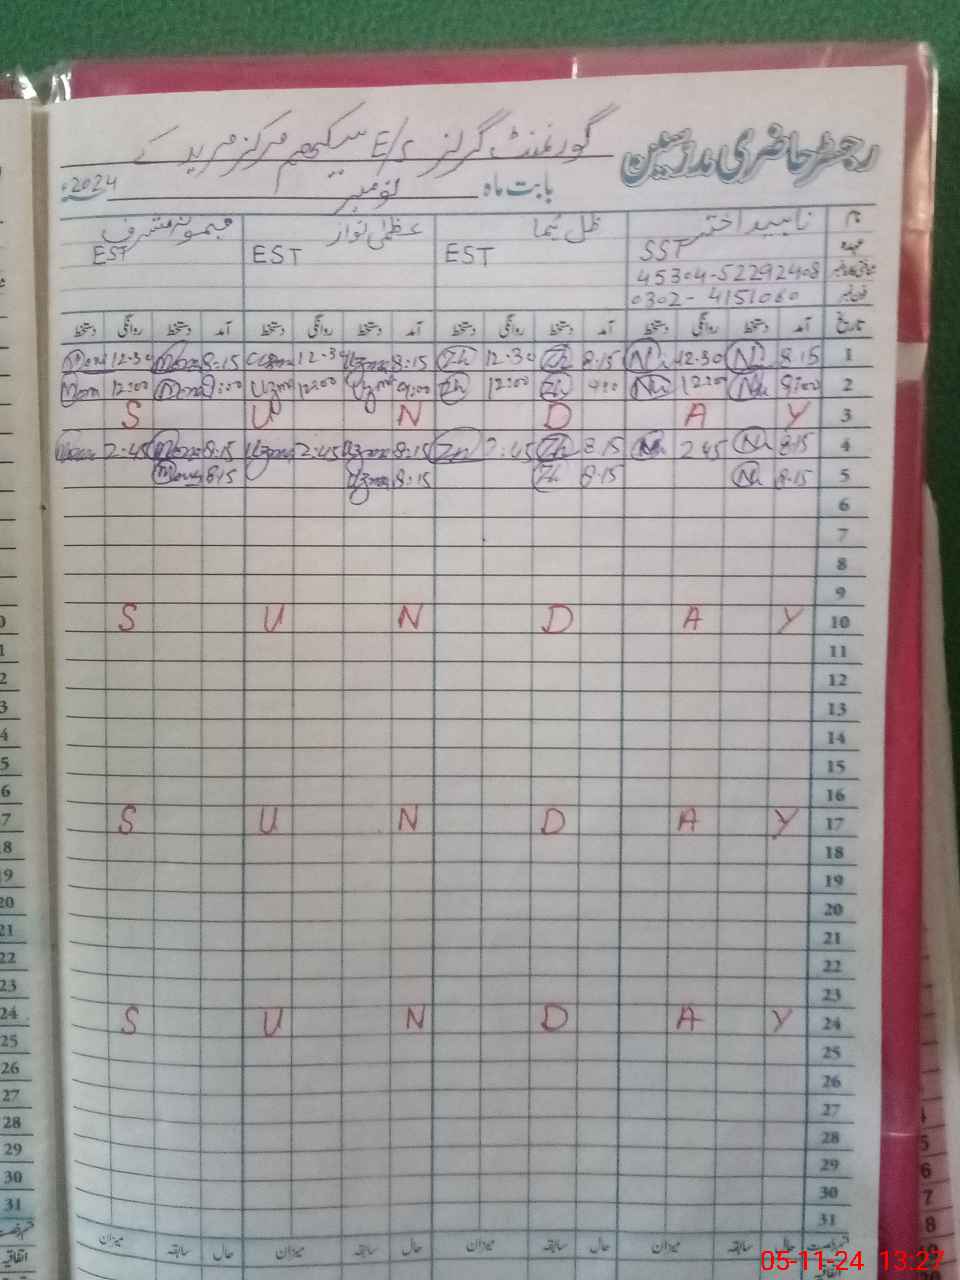 رجسٹر حاضری مدرسین گورنمنٹ گرلز E/S سکیھم مرکز مرید کے
بابت ماہ نومبر 2024ء
نام ناہید اختر ظل ہما عظمیٰ نواز میمونہ مشرف
عہدہ SST EST EST EST
45304-5229240-8
0302-4151060
تاریخ آمد دستخط روانگی دستخط آمد دستخط روانگی دستخط آمد دستخط روانگی دستخط آمد دستخط روانگی دستخط
1 8.15 Na 12.30 Na 8.15 Zh 12.30 Zh 8:15 Uzma 12.30 Uzma 8:15 Mom 12.30 Mom
2 9:00 Na 12:00 Na 9:00 Zh 12:00 Zh 9:00 Uzma 12:00 Uzma 9:00 Mom 12:00 Mom
3 S U N D A Y
4 8.15 Na 2.45 Na 8.15 Zh 2.45 Zh 8:15 Uzma 2.45 Uzma 8.15 Mom 2.45 Mom
5 8.15 Na 8.15 Zh 8:15 Uzma 8.15 Mom
6
7
8
9
10 S U N D A Y
11
12
13
14
15
16
17 S U N D A Y
18
19
20
21
22
23
24 S U N D A Y
25
26
27
28
29
30
31
حال سابقہ میزان حال سابقہ میزان حال سابقہ میزان حال سابقہ میزان
اتفاقیہ
05-11-24 13:27